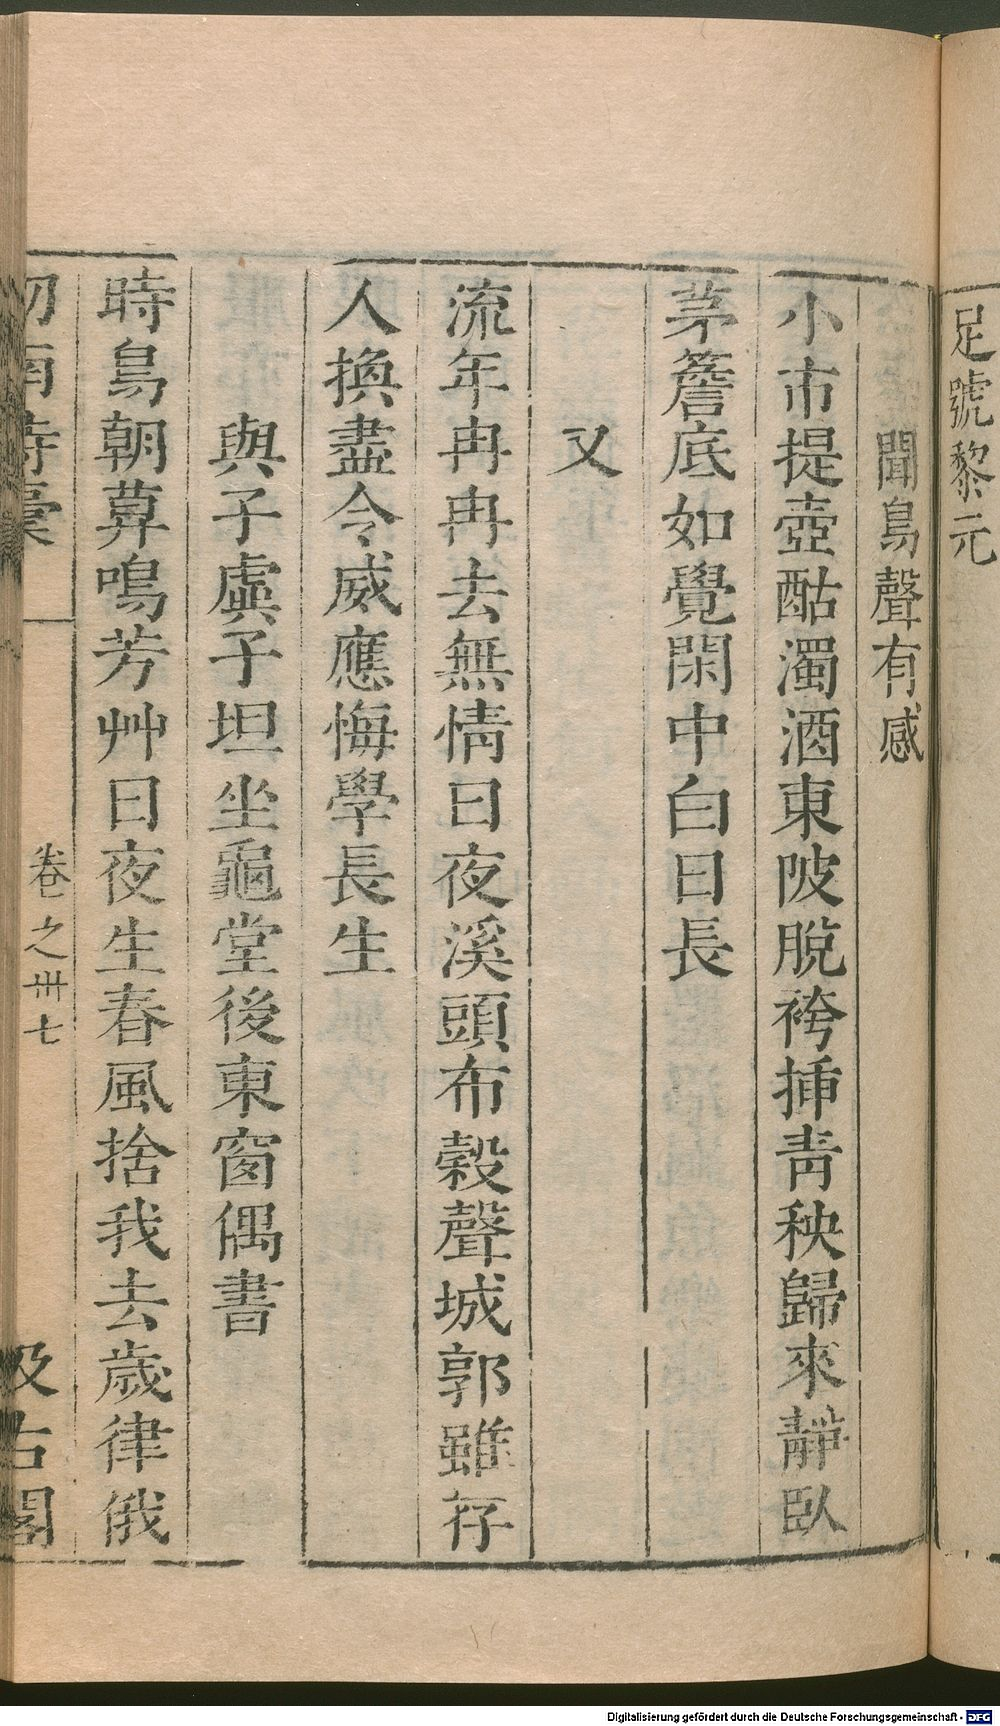 足號黎元
聞鳥聲有感
小市提壺酤濁酒東陂脫袴揷靑秧歸來靜臥
茅簷底如覺閑中白日長
又
流年冉冉去無情日夜溪頭布穀聲城郭雖存
人換盡令威應悔學長生
與子虡子坦坐龜堂後東窗偶書
時鳥朝莫鳴芳艸日夜生春風捨我去歲律俄
劒南詩稾
卷之卅七
汲古閣
Digitalisierung gefördert durch die Deutsche Forschungsgemeinschaft - DFG